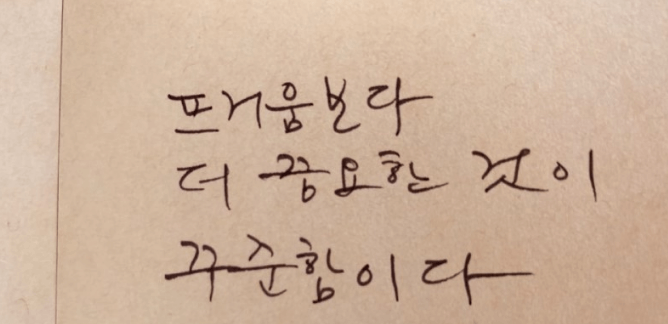 뜨거움보다
더 중요한 것이
꾸준함이다